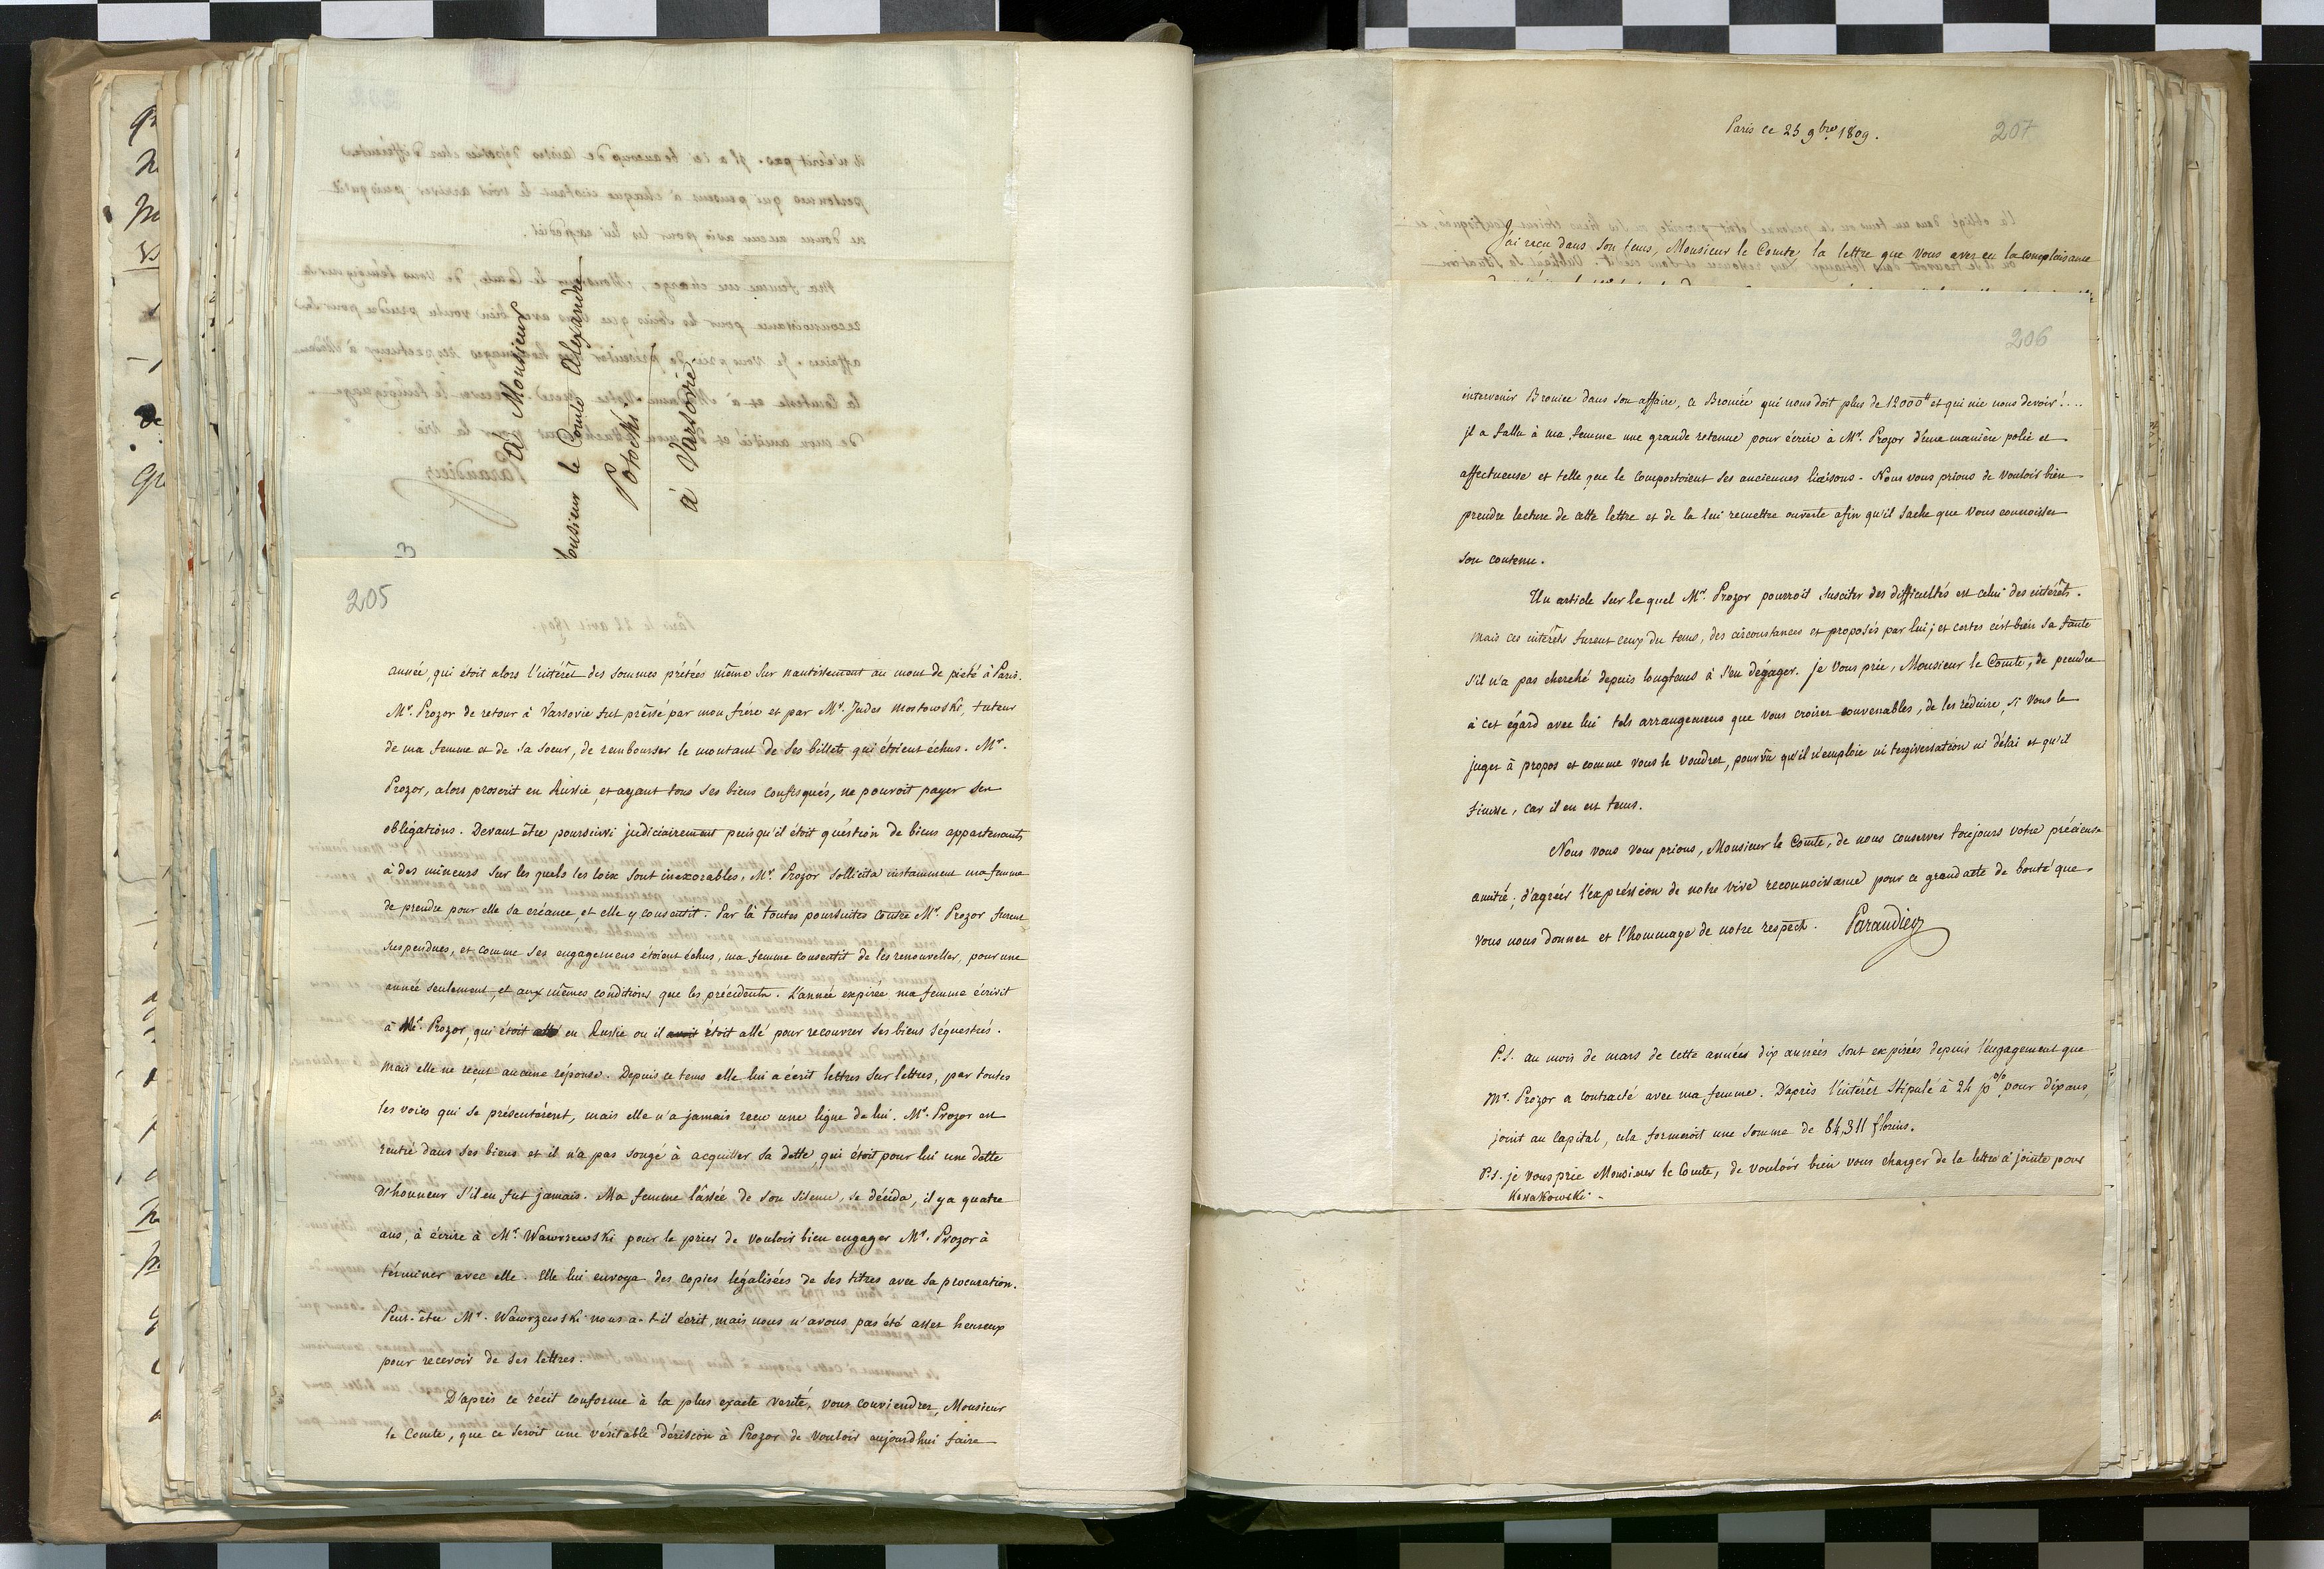 à Monsieur
Monsieur le Comte Alexandre
Potocki
à Varsovie
3
205
année, qui étoit alors l'intérêt des sommes prêtées même sur nantissement au mont de pieté à Paris.
Mr. Prozor de retour à Varsovie fut pressé par mon frère et par Mr. Judes Mostowski, tuteur
de ma femme et de sa soeur, de rembourser le montant de ses billets qui étoient échus. Mr.
Prozor, alors proscrit en Russie et ayant tous ses biens confisqués, ne pouvoit payer ses
obligations. Devant être poursuivi judiciairement puisqu'il étoit question de biens appartenants
à des mineurs sur les quels les loix sont inexorables, Mr. Prozor sollicita instamment ma femme
de prendre pour elle sa créance, et elle y consentit. Par là toutes poursuites contre Mr. Prozor furent
suspendues, et comme ses engagemens étoient échus, ma femme consentit de les renouveller, pour une
année seulement, et aux mêmes conditions que les précédents. L'année expirée ma femme écrivit
à Mr. Prozor, qui étoit allé en Russie ou il avoit étoit allé pour recouvrer ses biens séquestrés.
Mais elle ne reçut aucune réponse. Depuis ce tems elle lui a écrit lettres sur lettres, par toutes
les voies qui se présentèrent, mais elle n'a jamais reçu une ligne de lui. Mr. Prozor est
rentré dans ses biens et il n'a pas songé à acquitter sa dette, qui étoit pour lui une dette
d'honneur s'il en fut jamais. Ma femme lassée de son silence, se décida, il y a quatre
ans, à écrire à Mr. Wawrzewski pour le prier de vouloir bien engager Mr. Prozor à
terminer avec elle. Elle lui envoya des copies légalisées de ses titres avec sa procuration.
Peut-être Mr. Wawrzewski nous a-t-il écrit, mais nous n'avons pas été assez heureux
pour recevoir de ses lettres.
D'après ce récit conforme à la plus exacte verité, vous conviendrez, Monsieur
le Comte, que ce seroit une véritable dérision à Prozor de vouloir aujourd'hui faire
Paris ce 25 9bre. 1809.
207
J'ai reçu dans son tems, Monsieur le Comte, la lettre que vous avez eu la complaisance
206
intervenir Bronice dans son affaire, ce Bronice qui nous doit plus de 12000# et qui nie nous devoir!....
Il a fallu à ma femme une grande retenue pour écrire à Mr. Prozor d'une manière polie et
affectueuse et telle que le comportoient ses anciennes liaisons. Nous vous prions de vouloir bien
prendre lecture de cette lettre et de la lui remettre ouverte afin qu'il sache que vous connoissez
son contenu.
Un article sur le quel Mr. Prozor pourroit susciter des difficultés est celui des intérêts.
Mais ces intérêts furent ceux du tems, des circonstances et proposés par lui; et certes c'est bien sa faute
s'il n'a pas cherché depuis longtems à s'en dégager. Je vous prie, Monsieur le Comte, de prendre
à cet égard avec lui tels arrangemens que vous croirez convenables, de les réduire, si vous le
jugez à propos et comme vous le voudrez, pourvû qu'il n'emploie ni tergiversation ni délai et qu'il
finisse, car il en est tems.
Nous vous vous prions, Monsieur le Comte, de nous conserver toujours votre précieuse
amitié, d'agréer l'expression de notre vive reconnoissance pour ce grand acte de bonté que
vous nous donnez et l'hommage de notre respect. Parandier
P.S. au mois de mars de cette année dix années sont expirées depuis l'engagement que
Mr. Prozor a contracté avec ma femme. D'après l'intérêt stipulé à 24 p% pour dix ans,
joint au capital, cela formeroit une somme de 64,311 florins.
P.S. je vous prie Monsieur le Comte, de vouloir bien vous charger de la lettre ci jointe pour
Kossakowski.